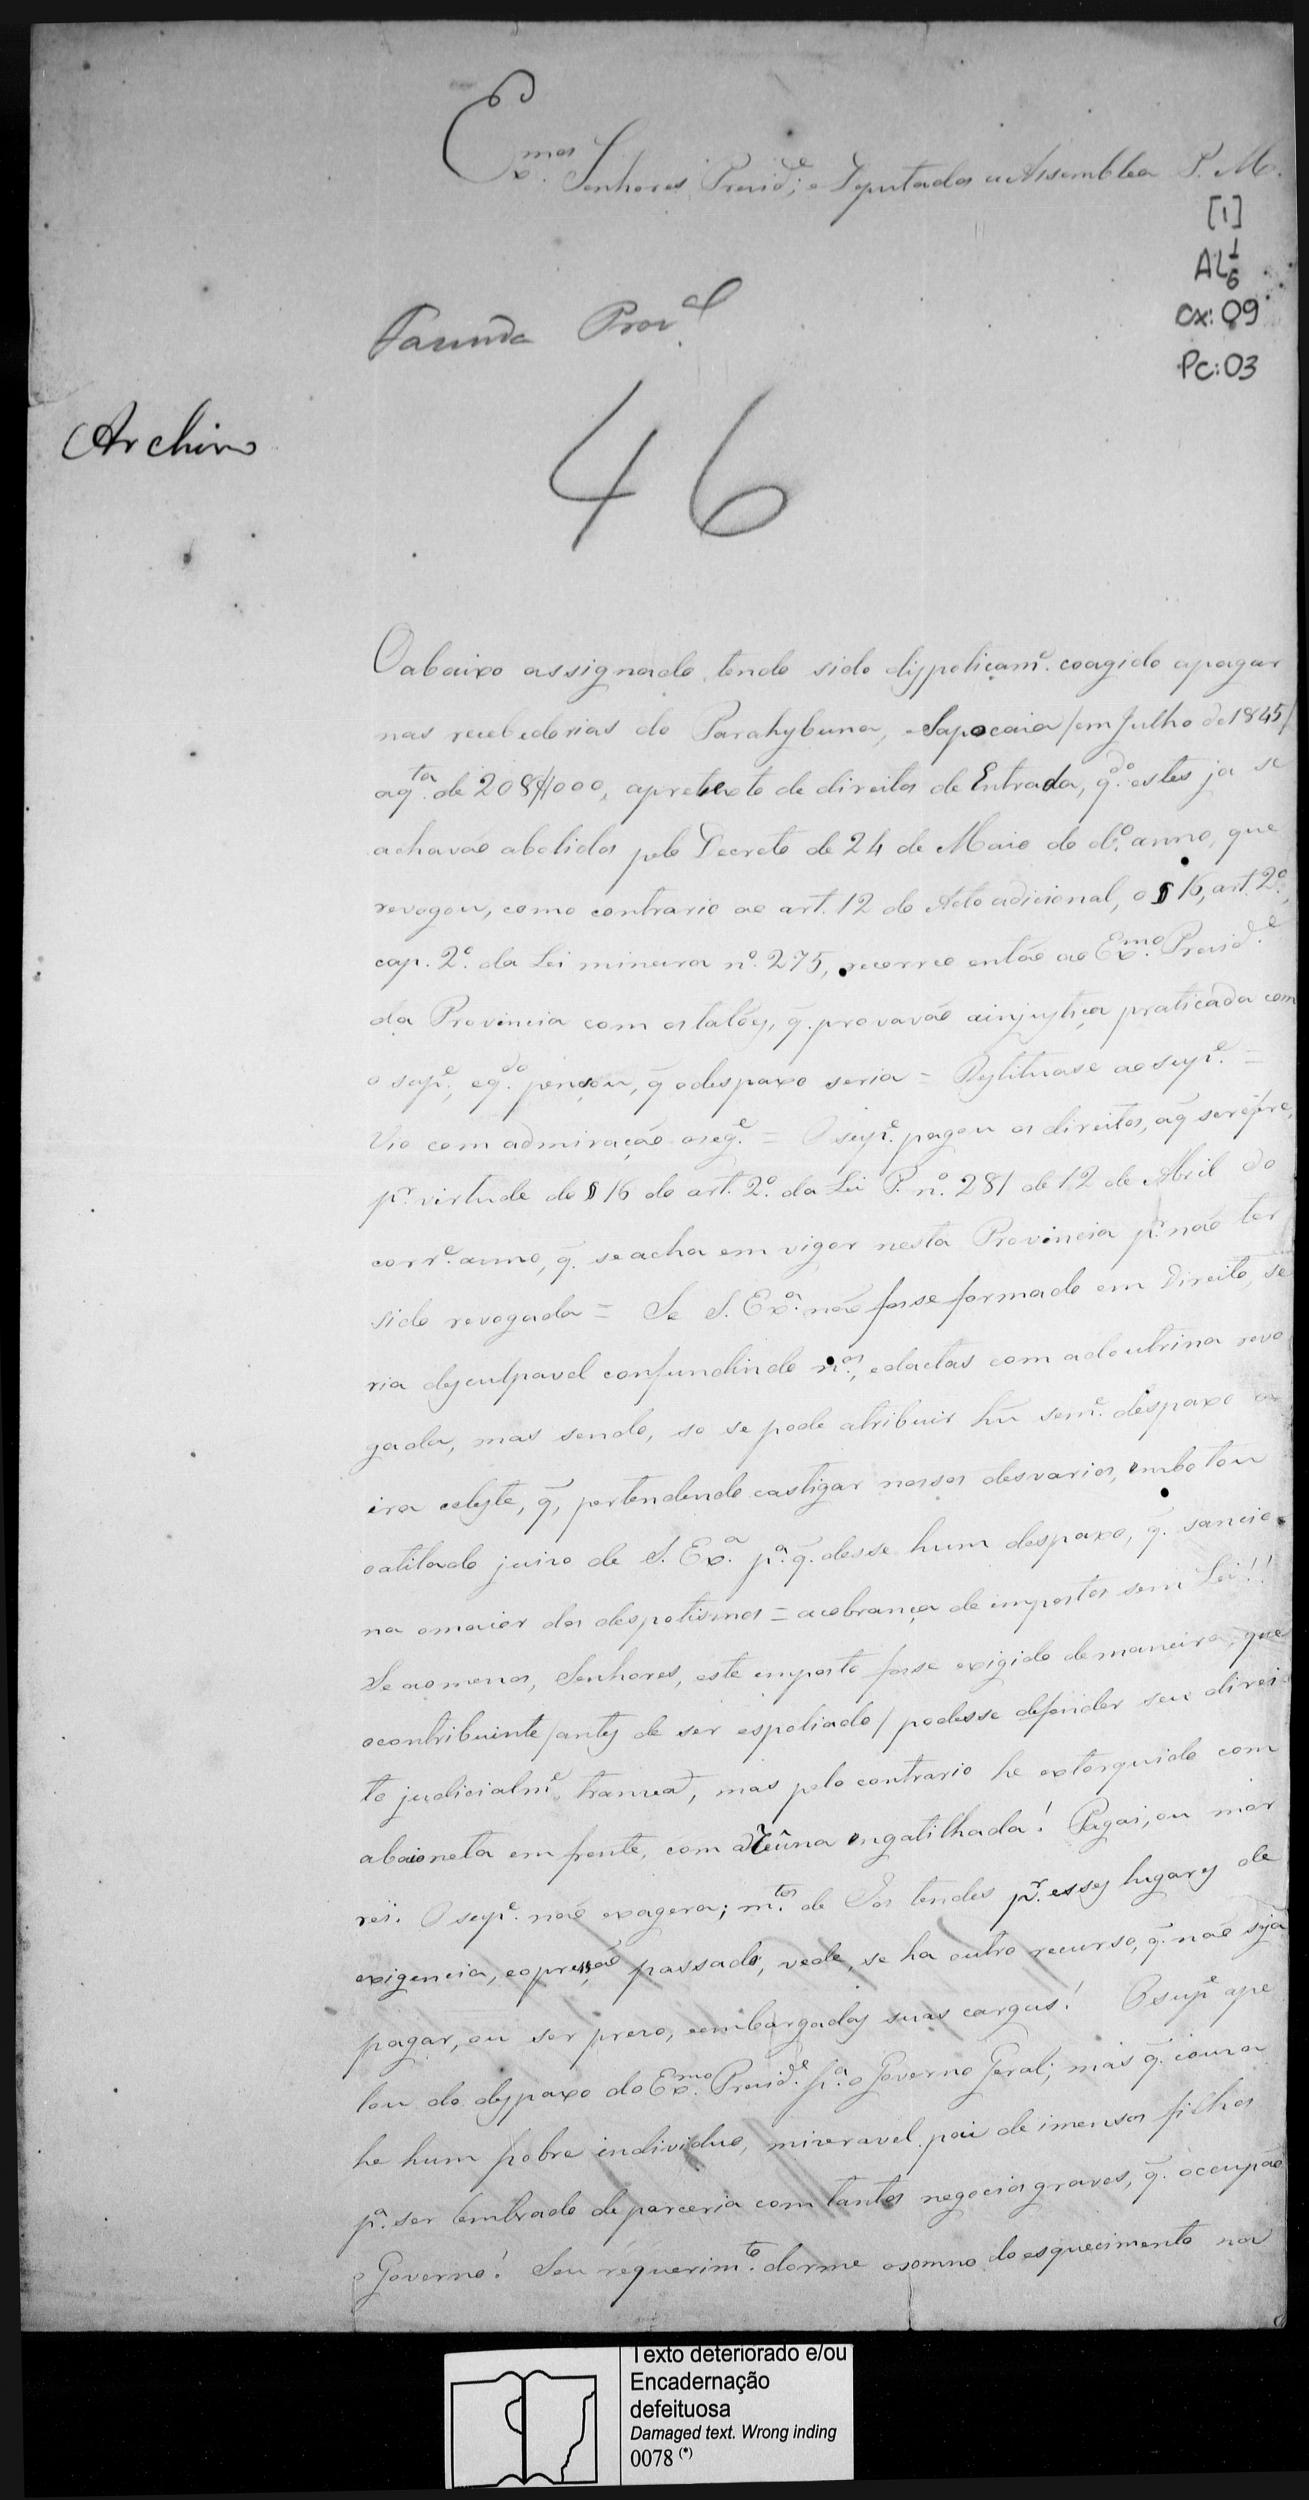 Ex.mos Senhores Presid.e, e Deputados á Assemblea P. M.
[1]
AL 1/6
CX: 09
PC: 03
Fazenda Prov.al
Archivo
46
O abaixo assignado, tendo sido dispoticam.e coagido a pagar
nas recebedorias do Parahybuna, e Sapocaia /em Julho de 1845/
a q.ta de 208$000, a pretexto de direitos de Entrada, q.do estes ja se
achavão abolidos pelo Decreto de 24 de Maio do d.o anno, que
revogou, como contrario ao art. 12 do Acto adicional, o § 16, art. 2.o,
cap. 2.o da Lei mineira n.o 275, recorreo então ao Ex.mo Presid.e
da Provincia com os talões, q̃. provavão a injustiça praticada com
o sup.e, e q.do pensou, q̃ o despaxo seria = Restituase ao sup.e =
Vio com admiração o seg.e = O sup.e pagou os direitos, a q̃ se refere,
p.r virtude do § 16 do art. 2.o da Lei P. n.o 281 de 12 de Abril do
corr.e anno, q̃. se acha em vigor nesta Provincia p.r não ter
sido revogada = Se S. Ex.a não fosse formado em Direito, se
ria desculpavel confundindo n.os, e dactas com a doutrina revo
gada, mas sendo, so se pode atribuir hũ sem.e despaxo a
ira celeste, q̃, pertendendo castigar nossos desvarios, embotou
o atilado juizo de S. Ex.a p.a q̃. desse hum despaxo, q̃. sancio
na o maior dos despotismos = a cobrança de impostos sem Lei!!
Se ao menos, Senhores, este imposto fosse exigido de maneira, que
o contribuinte /antes de ser espoliado/ podesse defender seu direi
to judicialm.e, mas pelo contrario he extorquido com
a baioneta em frente, com a engatilhada! Pagai, ou mor
rei. O sup.e não exagera; m.tos de Vos tendes p.r esses lugares de
exigencia, e opressão passado, vede, se ha outro recurso, q̃. não seja
pagar, ou ser prezo, e embargadas suas cargas! O sup.e ape
lou do despaxo do Ex.mo Presid.e p.a o Governo Geral; mas q̃. couza
he hum pobre individuo, mizeravel pai de imensos filhos
p.a ser lembrado de parceria com tantos negocios graves, q̃. occupão
o Governo! Seu requerim.to dorme o somno do esquecimento na
Texto deteriorado e/ou
Encadernação
defeituosa
Damaged text. Wrong inding
0078 (*)